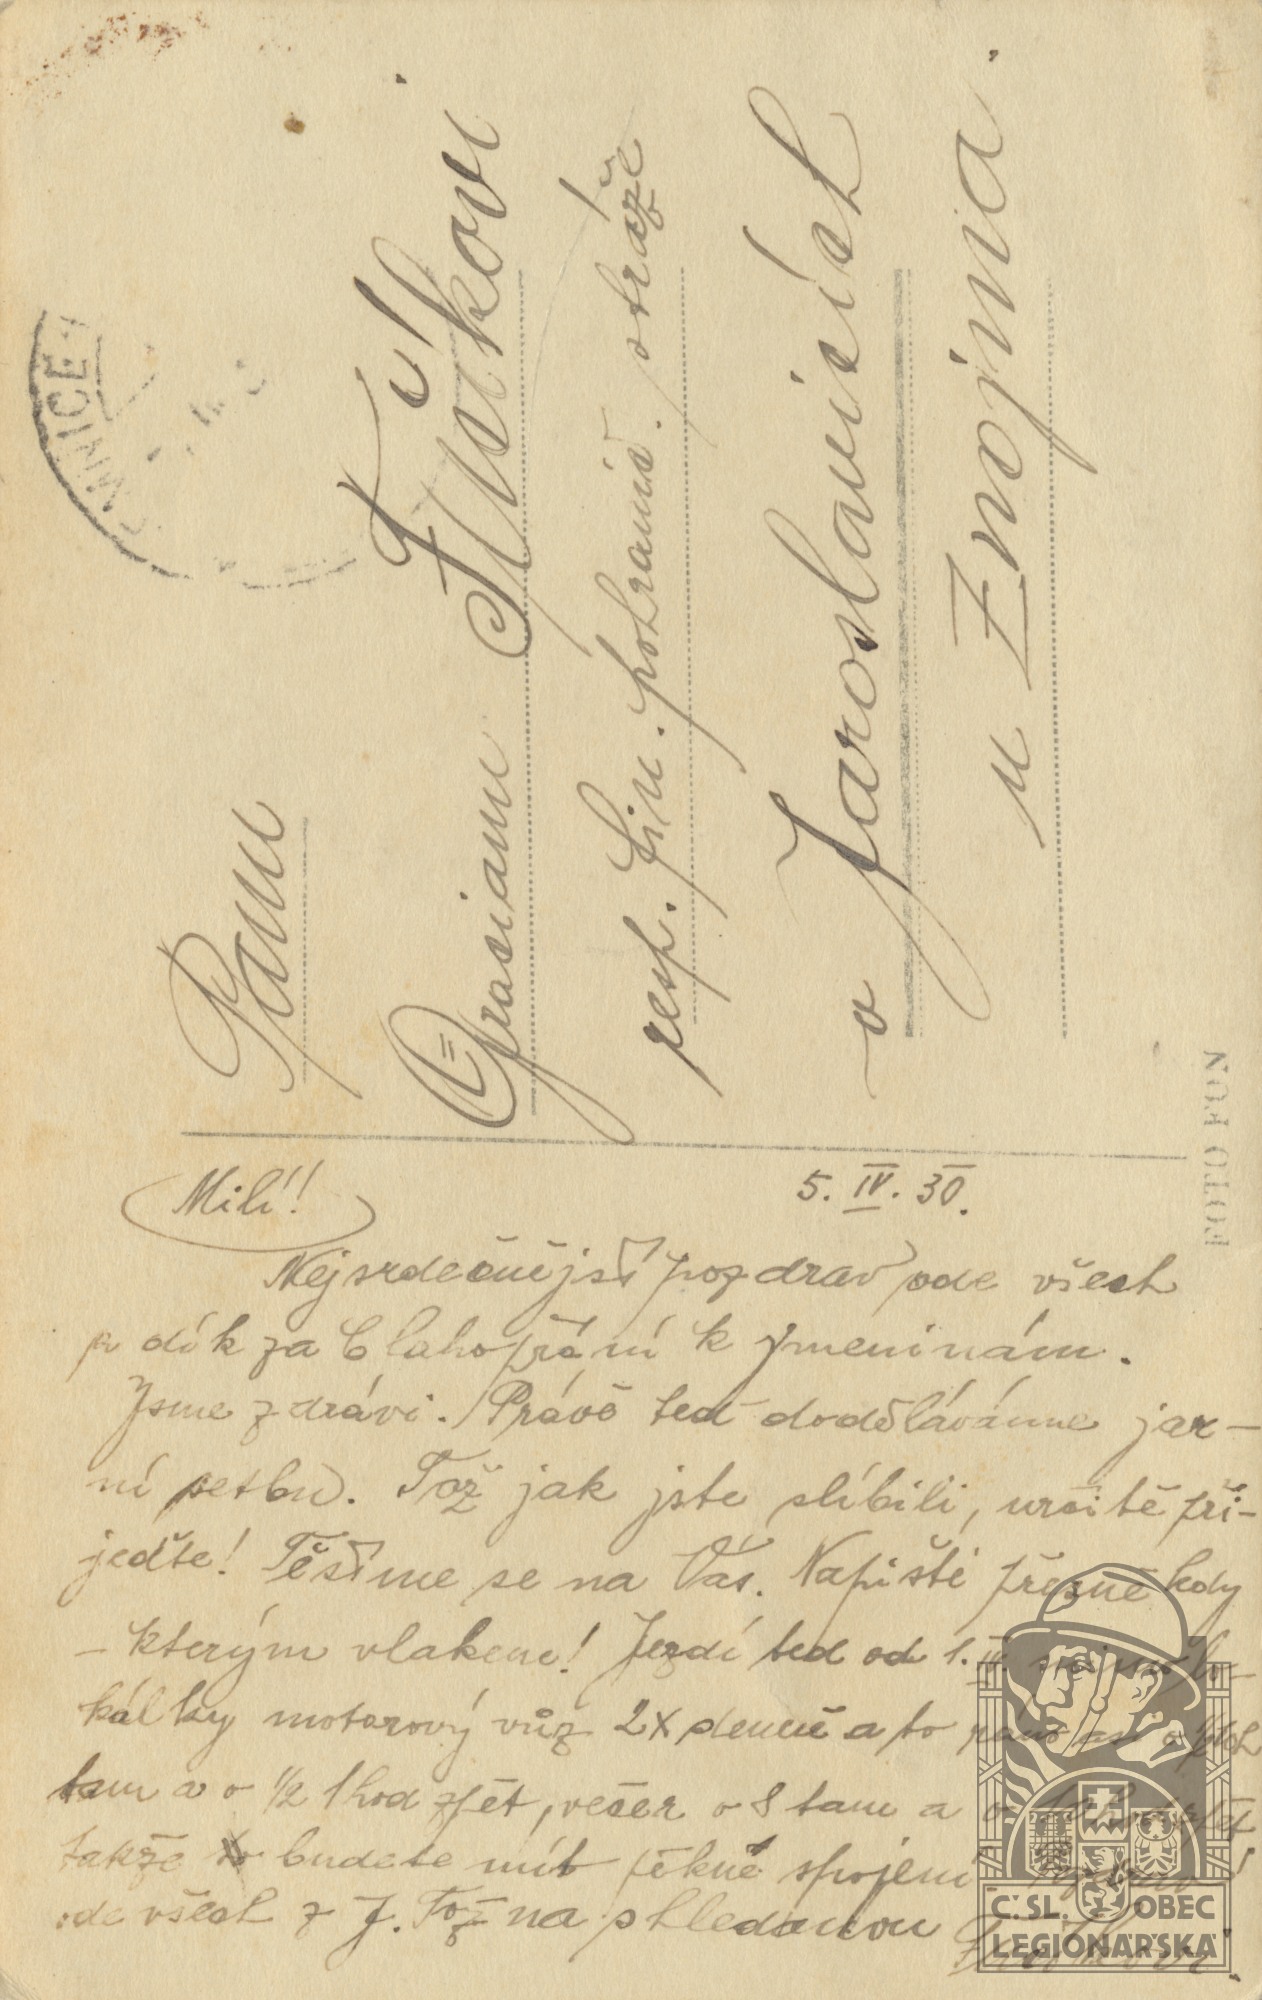 Panu
Grasianu Turkovi
resp. fin. pohranič. stráže
v Jaroslavicích
u Znojma
MNICE
FOTO FON
5. IV. 30.
Milí!
Nejsrdečnější pozdrav ode všech
a dík za blahopřání k jmeninám.
Jsme zdrávi. Právě teď doděláváme jar-
ní setbu. Tož jak jste slíbili, určitě při-
jeďte! Těšíme se na Vás. Napiště přesně kdy
- kterým vlakem! Jezdí teď od 1. IV. lo-
kálky motorový vůz 2x denně a to ráno
tam a v 1/2 1 hod zpět, večer v 8 tam a v zpět
takže budete mít pěkné spojení. Pozdrav
ode všech z J. Tož na shledanou
Č.SL. OBEC
LEGIONÁŘSKÁ